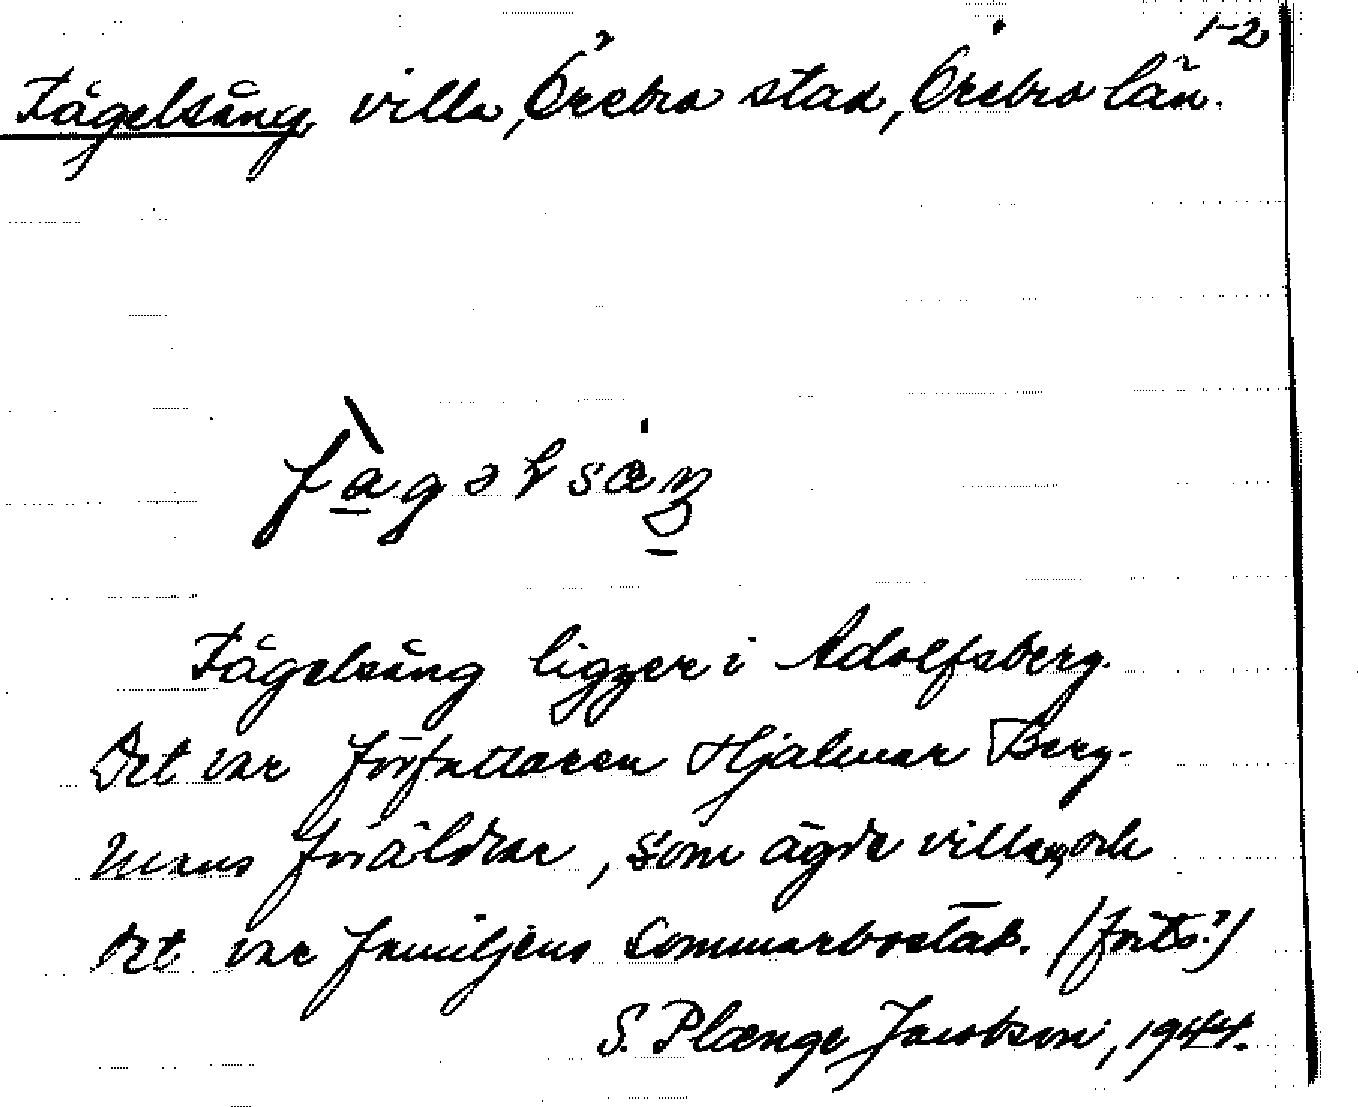 1-2
Fågelsång, villa, Örebro stad, Örebro län.
Fågelsång ligger i Adolfsberg.
Det var författaren Hjalmar Berg-
mans föräldrar, som ägde villan, och
det var familjens sommarbostad. (forts.)
S. Plænge Jacobson, 1944.